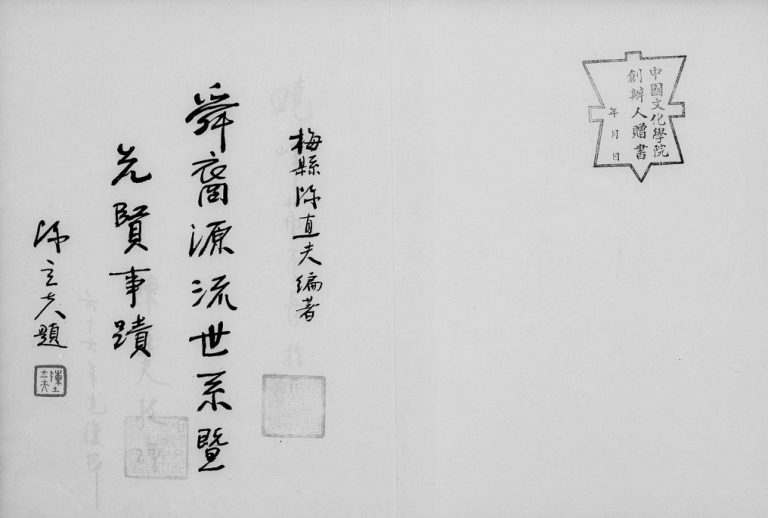 中國文化學院
創辦人贈書
年 月 日
梅縣陳直夫編著
舜裔源流世系暨
先賢事蹟
陳立夫題